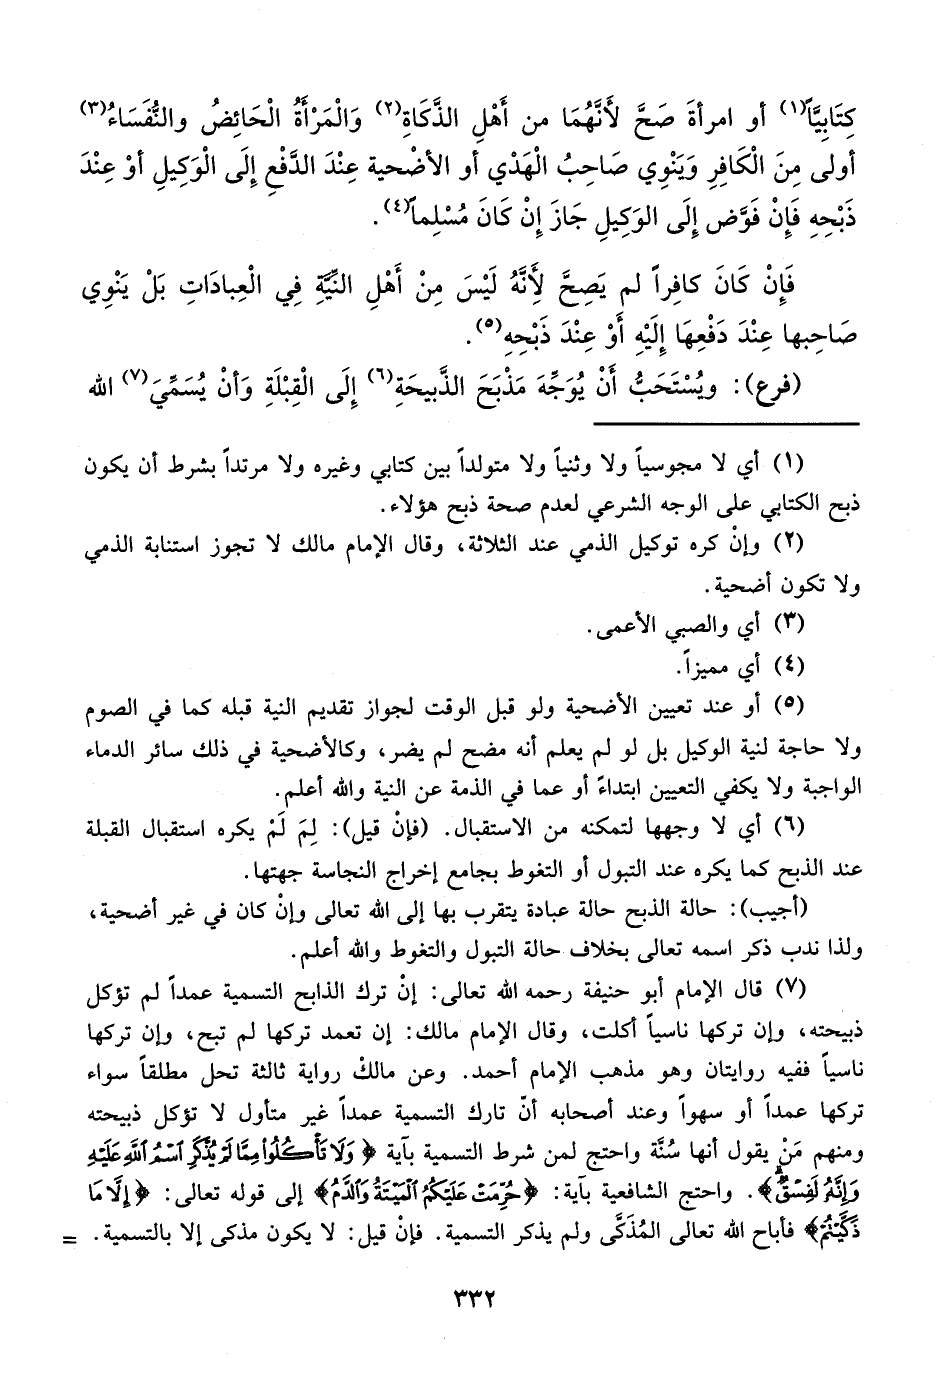 كِتَابِيَّاً(١) أو امرأةَ صَحَّ لأَنَّهُمَا من أَهْلِ الذَّكَاةِ(٢) وَالْمَرْأَةُ الْحَائِضُ والنُّفَسَاءُ(٣)
أولى مِنَ الْكَافِرِ وَيَنْوِي صَاحِبُ الْهَدْيِ أو الأضْحية عِنْدَ الدَّفْعِ إِلَى الْوَكِيلِ أوْ عِنْدَ
ذَبْحِهِ فَإِنْ فَوَّض إِلَى الوَكِيلِ جَازَ إِنْ كَانَ مُسْلِماً(٤).
فَإِنْ كَانَ كافِراً لم يَصِحَّ لِأَنَّهُ لَيْسَ مِنْ أَهْلِ النِّيَّةِ فِي الْعِبادَاتِ بَلْ يَنْوِي
صَاحِبها عِنْدَ دَفْعِهَا إِلَيْهِ أَوْ عِنْدَ ذَبْحِهِ(٥).
(فرع): ويُسْتَحَبُّ أَنْ يُوَجِّهَ مَذْبَحَ الذَّبِيحَةِ(٦) إِلَى الْقِبْلَةِ وَأنْ يُسَمِّيَ(٧) الله
(١) أي لا مجوسياً ولا وثنياً ولا متولداً بين كتابي وغيره ولا مرتداً بشرط أن يكون
ذبح الكتابي على الوجه الشرعي لعدم صحة ذبح هؤلاء.
(٢) وإنْ كره توكيل الذمي عند الثلاثة، وقال الإمام مالك لا تجوز استنابة الذمي
ولا تكون أضحية.
(٣) أي والصبي الأعمى.
(٤) أي مميزاً.
(٥) أو عند تعيين الأضحية ولو قبل الوقت لجواز تقديم النية قبله كما في الصوم
ولا حاجة لنية الوكيل بل لو لم يعلم أنه مضح لم يضر، وكالأضحية في ذلك سائر الدماء
الواجبة ولا يكفي التعيين ابتداءً أو عما في الذمة عن النية والله أعلم.
(٦) أي لا وجهها لتمكنه من الاستقبال. (فإنْ قيل): لِمَ لَمْ يكره استقبال القبلة
عند الذبح كما يكره عند التبول أو التغوط بجامع إخراج النجاسة جهتها.
(أجيب): حالة الذبح حالة عبادة يتقرب بها إلى الله تعالى وإنْ كان في غير أضحية،
ولذا ندب ذكر اسمه تعالى بخلاف حالة التبول والتغوط والله أعلم.
(٧) قال الإمام أبو حنيفة رحمه الله تعالى: إنْ ترك الذابح التسمية عمداً لم تؤكل
ذبيحته، وإن تركها ناسياً أكلت، وقال الإمام مالك: إن تعمد تركها لم تبح، وإن تركها
ناسياً ففيه روايتان وهو مذهب الإمام أحمد. وعن مالكْ رواية ثالثة تحل مطلقاً سواء
تركها عمداً أو سهواً وعند أصحابه أنّ تارك التسمية عمداً غير متأول لا تؤكل ذبيحته
ومنهم مَنْ يقول أنها سُنَّة واحتج لمن شرط التسمية بآية ﴿وَلَا تَأْكُلُوا مِمَّا لَمْ يُذْكَرِ اسْمُ اللَّهِ عَلَيْهِ
وَإِنَّهُ لَفِسْقٌ﴾. واحتج الشافعية بآية: ﴿حُرِّمَتْ عَلَيْكُمُ الْمَيْتَةُ وَالدَّمُ﴾ إلى قوله تعالى: ﴿إِلَّا مَا
ذَكَّيْتُمْ﴾ فأباح الله تعالى المُذَكَّى ولم يذكر التسمية. فإنْ قيل: لا يكون مذكى إلا بالتسمية. =
٣٣٢